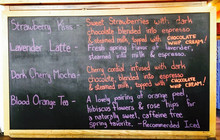 Strawberry Kiss - Sweet Strawberries with dark
chocolate blended into espresso
& steamed milk topped with CHOCOLATE
WHIP CREAM!
Lavender Latte - Fresh spring flavor of lavender,
steamed milk & espresso.
Dark Cherry Mocha - Cherry cordial infused with dark
chocolate, blended into espresso
& steamed milk, topped w/ CHOCOLATE
WHIP CREAM!
Blood Orange Tea - A lovely pairing of orange peel,
hibiscus flowers & rose hips for
a naturally sweet, caffeine free
spring favorite. -Recommended Iced